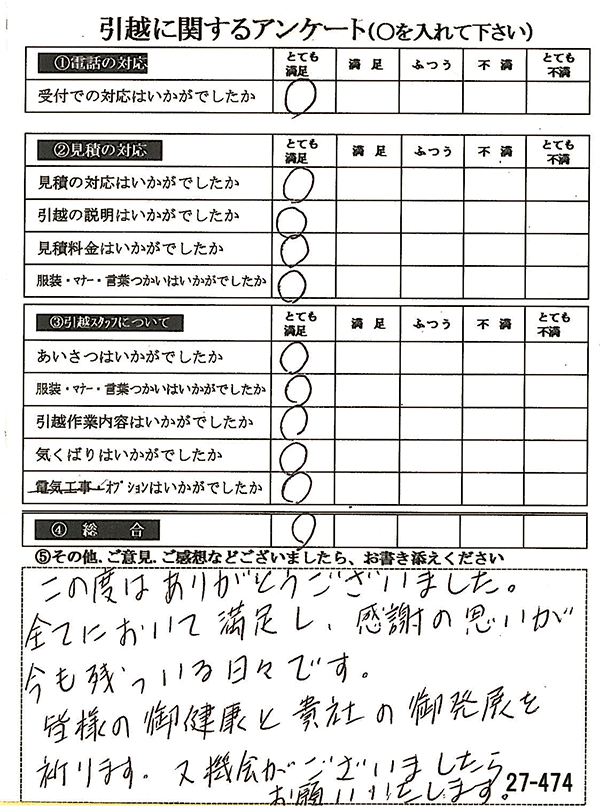 引越に関するアンケート(○を入れて下さい)
①電話の対応 とても満足 満足 ふつう 不満 とても不満
受付での対応はいかがでしたか ○
②見積の対応 とても満足 満足 ふつう 不満 とても不満
見積の対応はいかがでしたか ○
引越の説明はいかがでしたか ○
見積料金はいかがでしたか ○
服装・マナー・言葉つかいはいかがでしたか ○
③引越スタッフについて とても満足 満足 ふつう 不満 とても不満
あいさつはいかがでしたか ○
服装・マナー・言葉つかいはいかがでしたか ○
引越作業内容はいかがでしたか ○
気くばりはいかがでしたか ○
電気工事・オプションはいかがでしたか ○
④総合 ○
⑤その他、ご意見、ご感想などございましたら、お書き添えください
この度はありがとうございました。
全てにおいて満足し、感謝の思いが
今も残っいる日々です。
皆様の御健康と貴社の御発展を
祈ります。又機会がございましたら
お願いいたします。
27-474